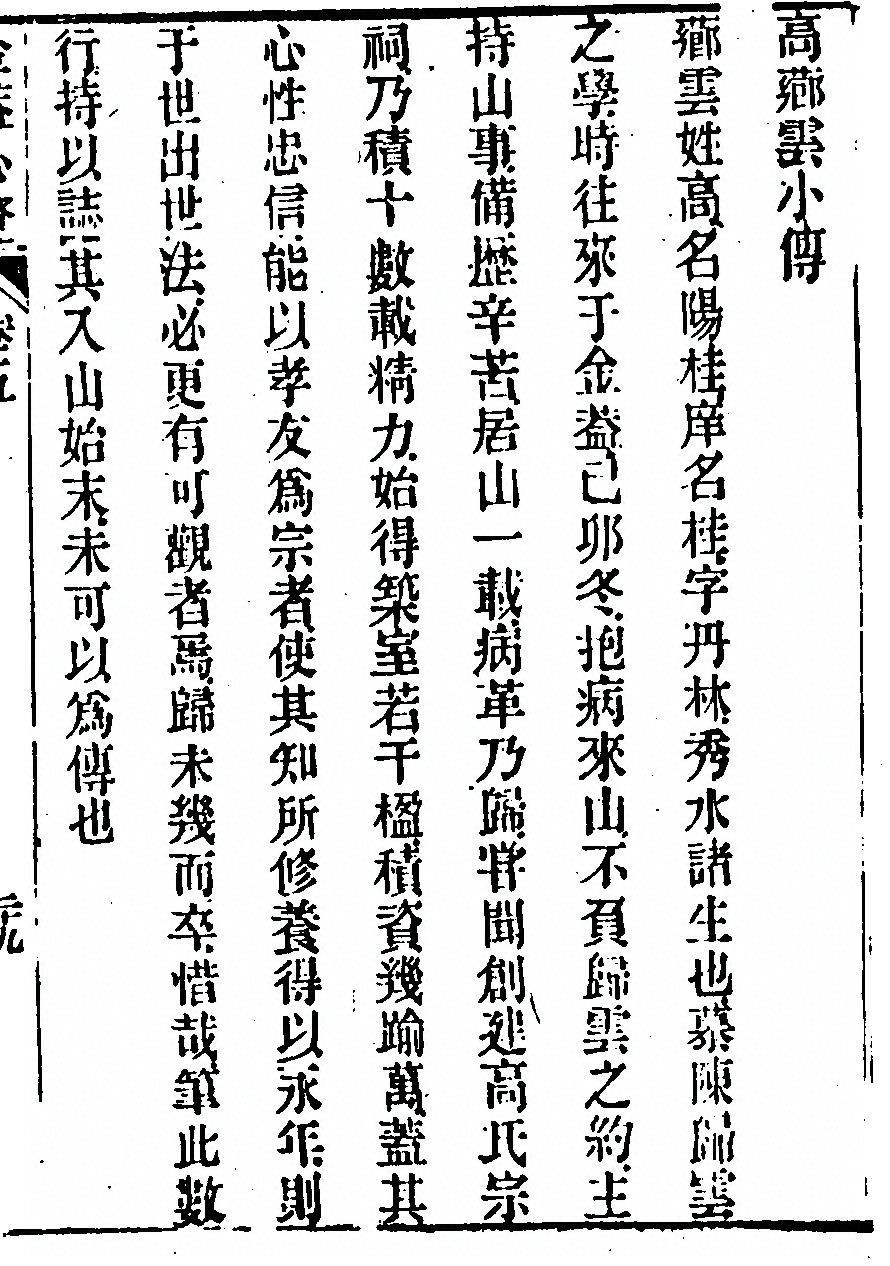 高薌雲小傳
薌雲姓高名陽桂庠名桂字丹林秀水諸生也慕陳歸雲
之學時往來于金葢己卯冬抱病來山不負歸雲之約主
持山事備歷辛苦居山一載病革乃歸嘗聞創建高氏宗
祠乃積十數載精力始得築室若干楹積資幾踰萬蓋其
心性忠信能以孝友爲宗者使其知所修養得以永年則
于世出世法必更有可觀者焉歸未幾而卒惜哉筆此數
行持以誌其入山始末未可以爲傳也
金蓋心燈 卷五